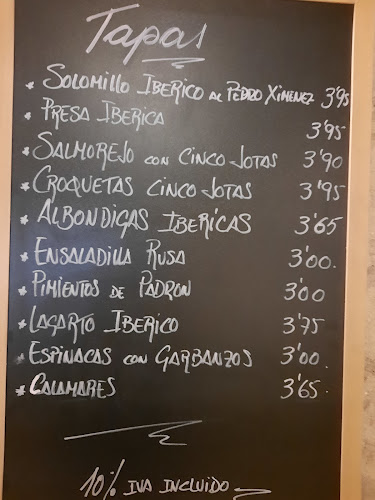 Tapas
* SOLOMILLO IBERICO AL PEDRO XIMENEZ 3'95
* PRESA IBERICA 3'95
* SALMOREJO CON CINCO JOTAS 3'90
* CROQUETAS CINCO JOTAS 3'95
* ALBONDIGAS IBERICAS 3'65
* ENSALADILLA RUSA 3'00.
* PIMIENTOS DE PADRON 3'00
* LAGARTO IBERICO 3'75
* ESPINACAS CON GARBANZOS 3'00.
* CALAMARES 3'65.
10% IVA INCLUIDO